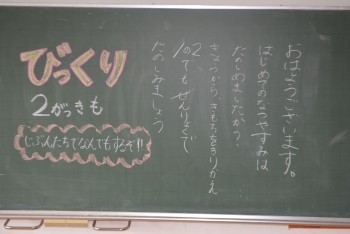 おはようございます。
はじめてのなつやすみは
たのしめましたか?
きょうから、きもちをきりかえ
2
1のても ぜんりょくで
たのしみましょう
びっくり
2がっきも
じぶんたちでなんでもするぞ!!